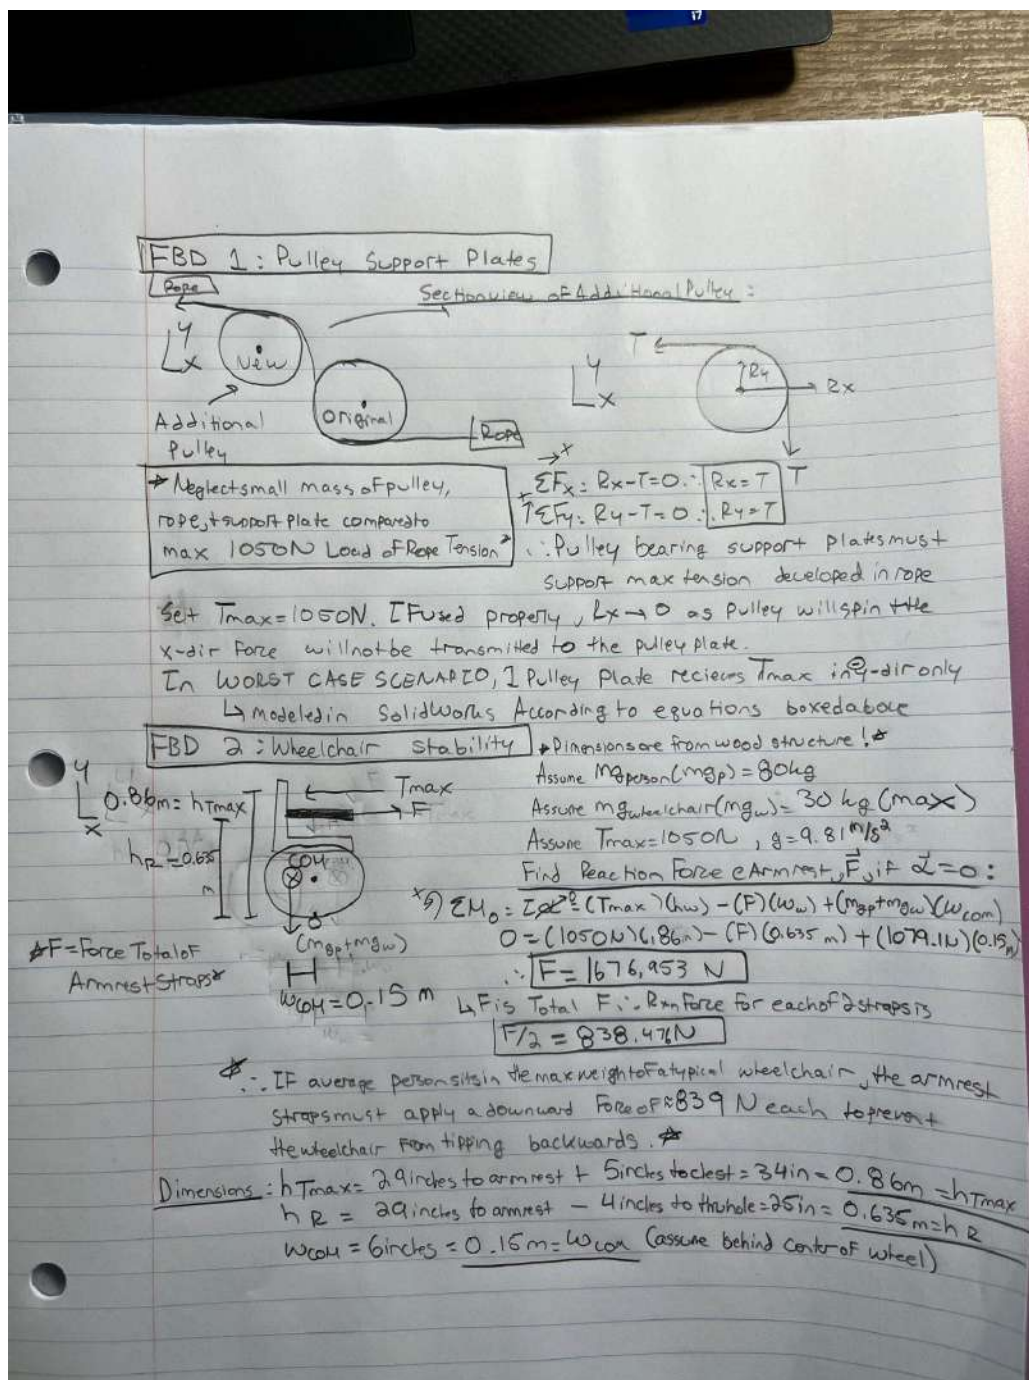 i7
FBD 1: Pulley Support Plates
Rope
Sectionview of Additional Pulley:
y
x
New
Additional
Pulley
Original
Rope
y
x
T
Ry
Rx
T
*Neglect small mass of pulley,
rope, + support plate compared to
max 1050N Load of Rope Tension*
→x
ΣFx = Rx-T=0 ∴ Rx=T
+↑ΣFy: Ry-T=0 ∴ Ry=T
∴ Pulley bearing support plates must
support max tension developed in rope
Set Tmax=1050N. IF used properly, Rx→0 as pulley will spin + the
x-dir force will not be transmitted to the pulley plate.
In WORST CASE SCENARIO, 1 Pulley Plate recieves Tmax in ⊖y-dir only
↳ modeled in SolidWorks According to equations boxed above
FBD 2: Wheelchair Stability
*Dimensions are from wood structure!*
y
x
0.86m = hTmax
hR = 0.635
m
Tmax
F
COM
(mgp+mgw)
wCOM = 0.15 m
*F=Force Total of
Armrest Straps*
Assume mgperson(mgp) = 80kg
Assume mgwheelchair(mgw) = 30 kg (max)
Assume Tmax=1050N, g=9.81 m/s²
Find Reaction Force @ Armrest, F, if α=0:
ΣMo = Iα = (Tmax)(hw) - (F)(ww) + (mgp+mgw)(wcom)
0 = (1050N)(.86m) - (F)(0.635 m) + (1079.1N)(0.15m)
∴ F = 1676.953 N
↳ F is Total F ∴ Rxn Force for each of 2 straps is
F/2 = 838.476N
* ∴ IF average person sits in the max weight of a typical wheelchair, the armrest
straps must apply a downward Force of ≈839 N each to prevent
the wheelchair from tipping backwards. *
Dimensions: hTmax = 29inches to armrest + 5inches to chest = 34in = 0.86m = hTmax
hR = 29 inches to armrest - 4inches to thruhole = 25in = 0.635m = hR
wCOM = 6inches = 0.15m = wCOM (assume behind center of wheel)